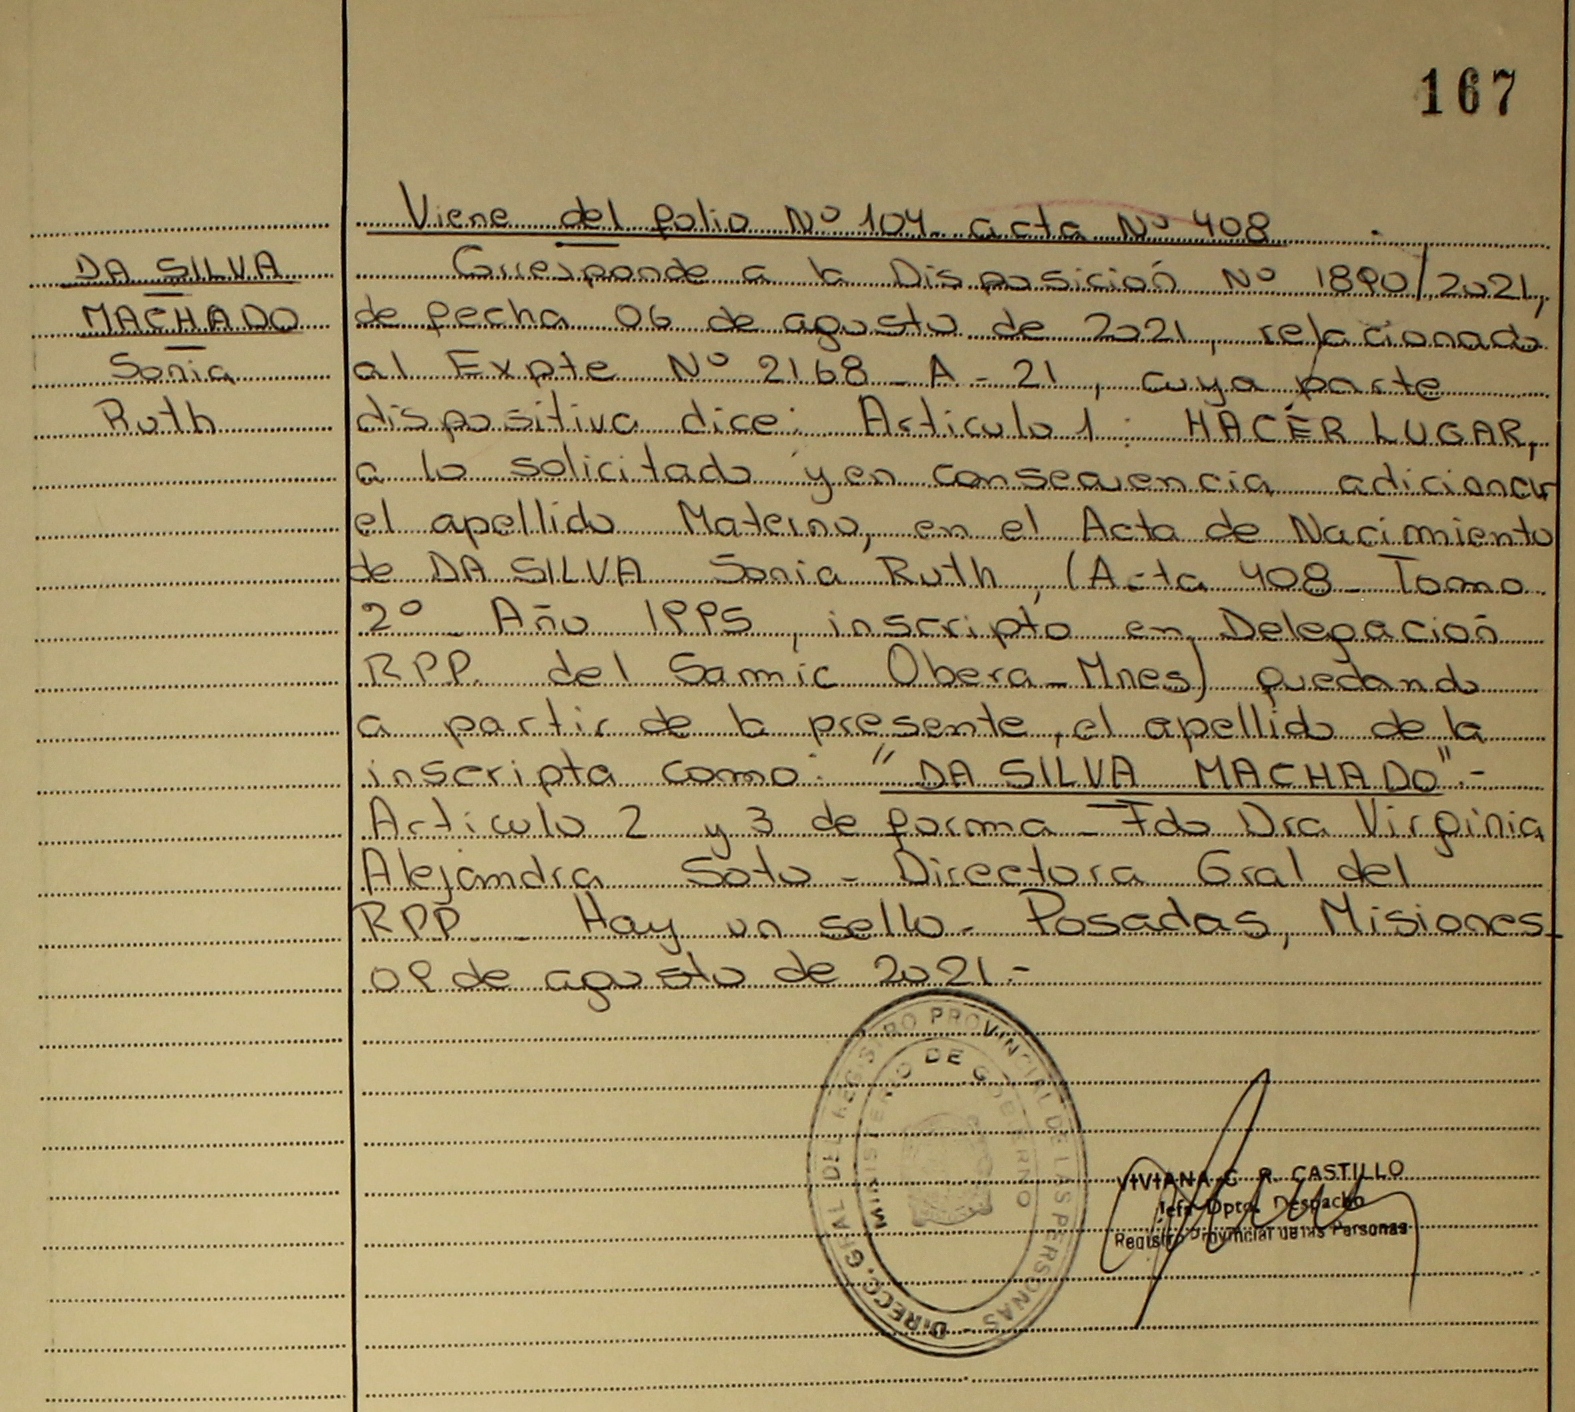 167
Viene del folio Nº 104 acta Nº 408
DA SILVA
MACHADO
Sonia
Ruth
Corresponde a la Disposición Nº 1890/2021,
de fecha 06 de agosto de 2021, relacionado
al Expte Nº 2168 - A - 21, cuya parte
dispositiva dice: Articulo 1: HACER LUGAR,
a lo solicitado y en consecuencia adicionar
el apellido Materno, en el Acta de Nacimiento
de DA SILVA Sonia Ruth, (Acta 408 - Tomo
2º - Año 1995, inscripto en Delegación
RPP. del Samic Obera - Mnes) quedando
a partir de la presente, el apellido de la
inscripta como: "DA SILVA MACHADO".-
Articulo 2 y 3 de forma - Fdo Dra Virginia
Alejandra Soto - Directora Gral del
RPP. - Hay un sello - Posadas, Misiones
09 de agosto de 2021.-
DIRECC. GRAL DEL REGISTRO PROVINCIAL DE LAS PERSONAS -
MINISTERIO DE GOBIERNO
VIVIANA G. R. CASTILLO
Jefa Dpto. Despacho
Registro Provincial de las Personas